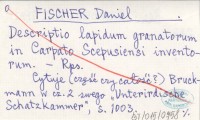 FISCHER Daniel.
Descriptio lapidum granatorum
in Carpato Scepusiensi invento-
rum. - Rps.
Cytuje (część czy całość?) Bruck-
mann w cz. 2 swego "Unterirdische
Schatzkammer", s. 1003.